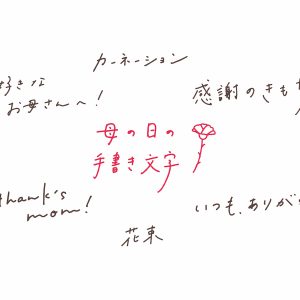 カーネーション
好きな
お母さんへ!
感謝のきも
母の日の
手書き文字
thank's
mom!
いつも、ありが
花束